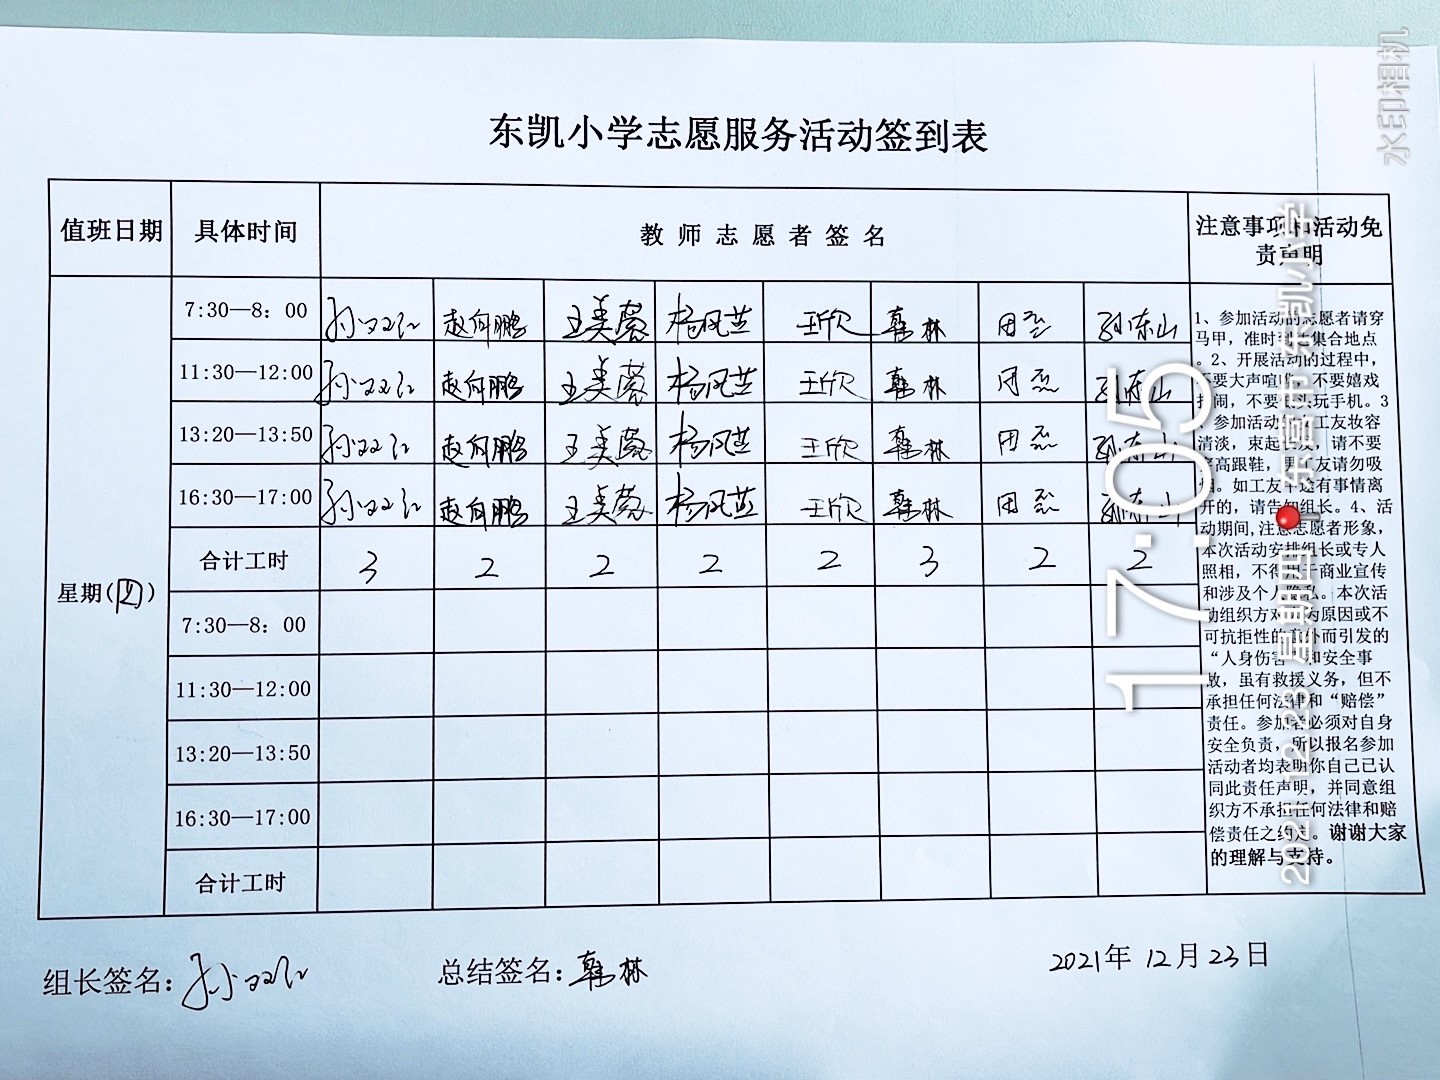 东凯小学志愿服务活动签到表
值班日期 具体时间 教师志愿者签名 注意事项和活动免责声明
星期(四)
7:30—8：00 赵向鹏 王美蓉 杨凤芝 王欣 韩林 孙东山
11:30—12:00 赵向鹏 王美蓉 杨凤芝 王欣 韩林 孙东山
13:20—13:50 赵向鹏 王美蓉 杨凤芝 王欣 韩林 孙东山
16:30—17:00 赵向鹏 王美蓉 杨凤芝 王欣 韩林 孙东山
合计工时 3 2 2 2 2 3 2 2
7:30—8：00
11:30—12:00
13:20—13:50
16:30—17:00
合计工时
1、参加活动的志愿者请穿
马甲，准时到达集合地点
。2、开展活动的过程中，
不要大声喧哗，不要嬉戏
打闹，不要低头玩手机。3
、参加活动的女工友妆容
清淡，束起长发，请不要
穿高跟鞋，男工友请勿吸
烟。如工友中途有事情离
开的，请告知组长。4、活
动期间,注意志愿者形象，
本次活动安排组长或专人
照相，不得用于商业宣传
和涉及个人隐私。本次活
动组织方对人为原因或不
可抗拒性的意外而引发的
“人身伤害”和安全事
故，虽有救援义务，但不
承担任何法律和“赔偿”
责任。参加者必须对自身
安全负责，所以报名参加
活动者均表明你自己已认
同此责任声明，并同意组
织方不承担任何法律和赔
偿责任之约定。谢谢大家
的理解与支持。
组长签名： 总结签名：韩林 2021年12月23日
水印相机
17:05
2021.12.23 星期四 东莞市·东凯小学